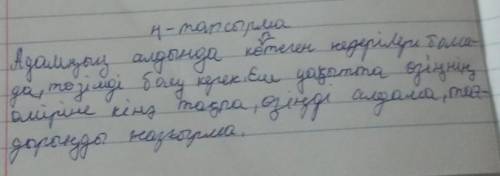 4-тапсырма
Адамның алдында көптеген кедергілер болса-
да, төзімді болу керек. Еш уақытта өзіңнің
өміріңе кінә тақпа, өзіңді алдама, таң-
дарыңды